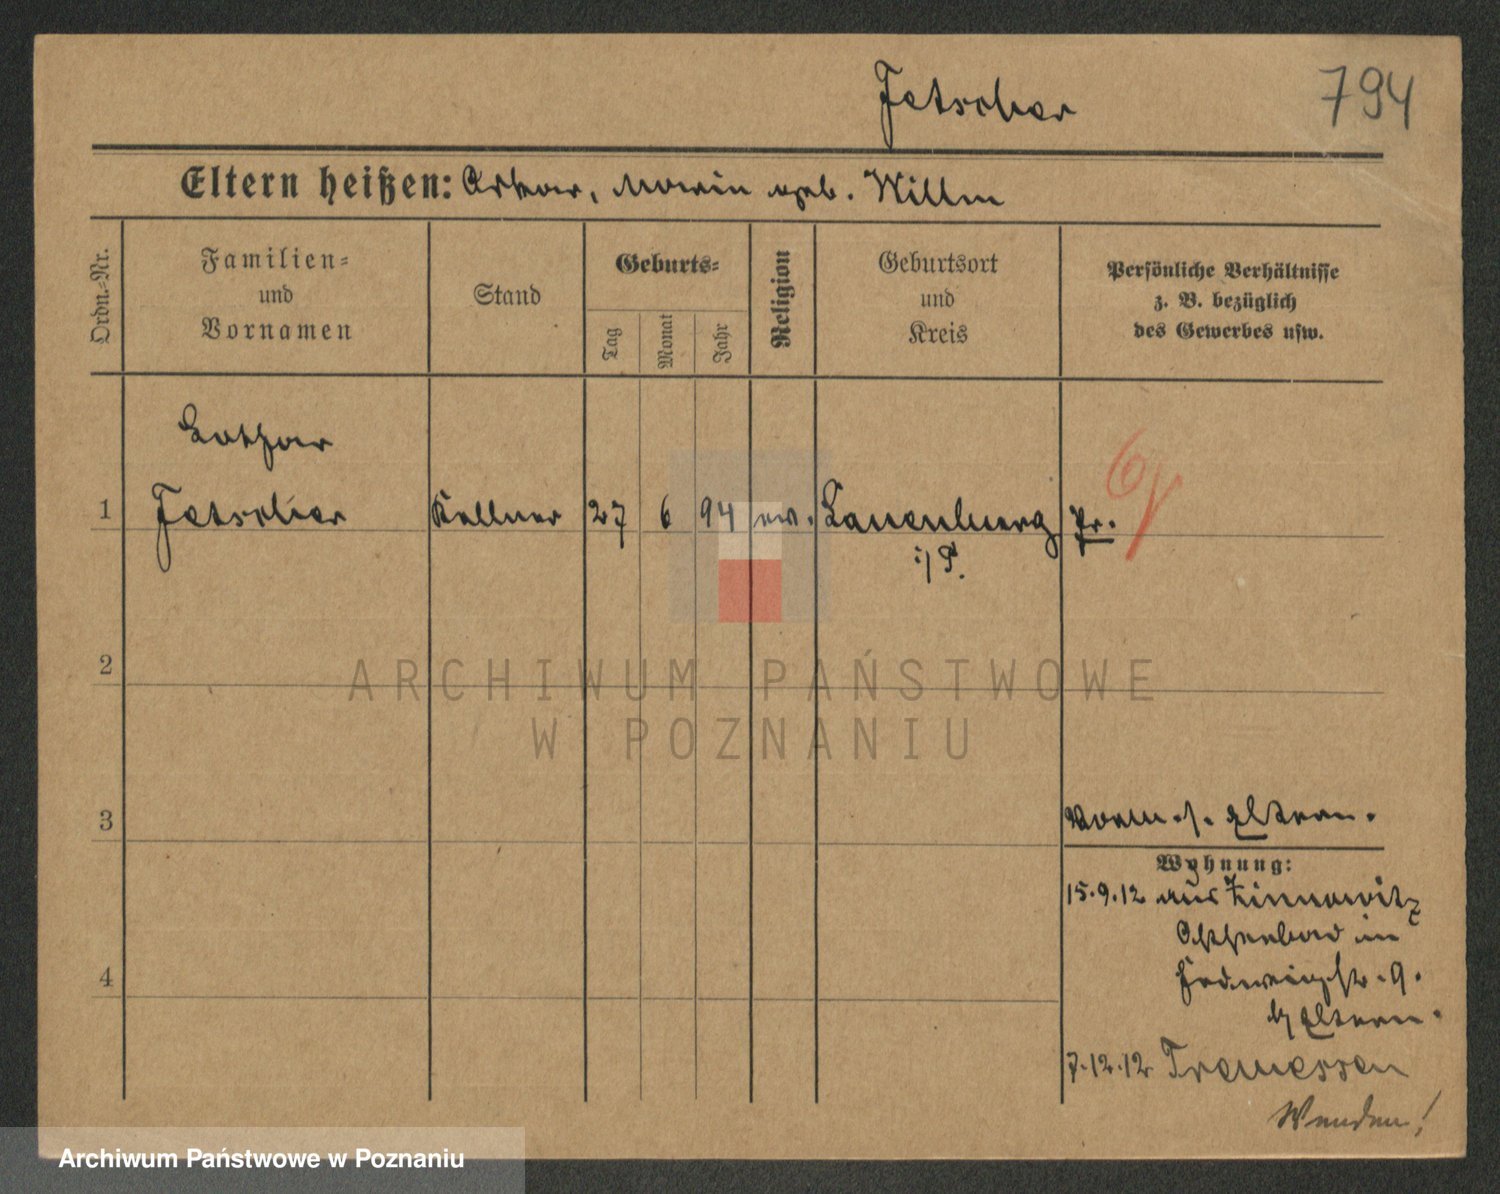 Fetscher
794
Eltern heißen: Oskar, Marie geb. Willm
Ordn.-Nr.
Familien-
und
Vornamen
Stand
Geburts-
Tag
Monat
Jahr
Religion
Geburtsort
und
Kreis
Persönliche Verhältnisse
z. B. bezüglich
des Gewerbes usw.
Lothar
1 Fetscher Kellner 27 6 94 ev. Lauenburg Pr.
i/P.
2
ARCHIWUM PAŃSTWOWE
W POZNANIU
3
Vorm. s. Eltern.
Wohnung:
15.9.12 aus Zinnowitz
Ostseebad in
Hedwigstr. 9.
b/ Eltern.
4
7.12.12 Tremessen
Wenden!
Archiwum Państwowe w Poznaniu